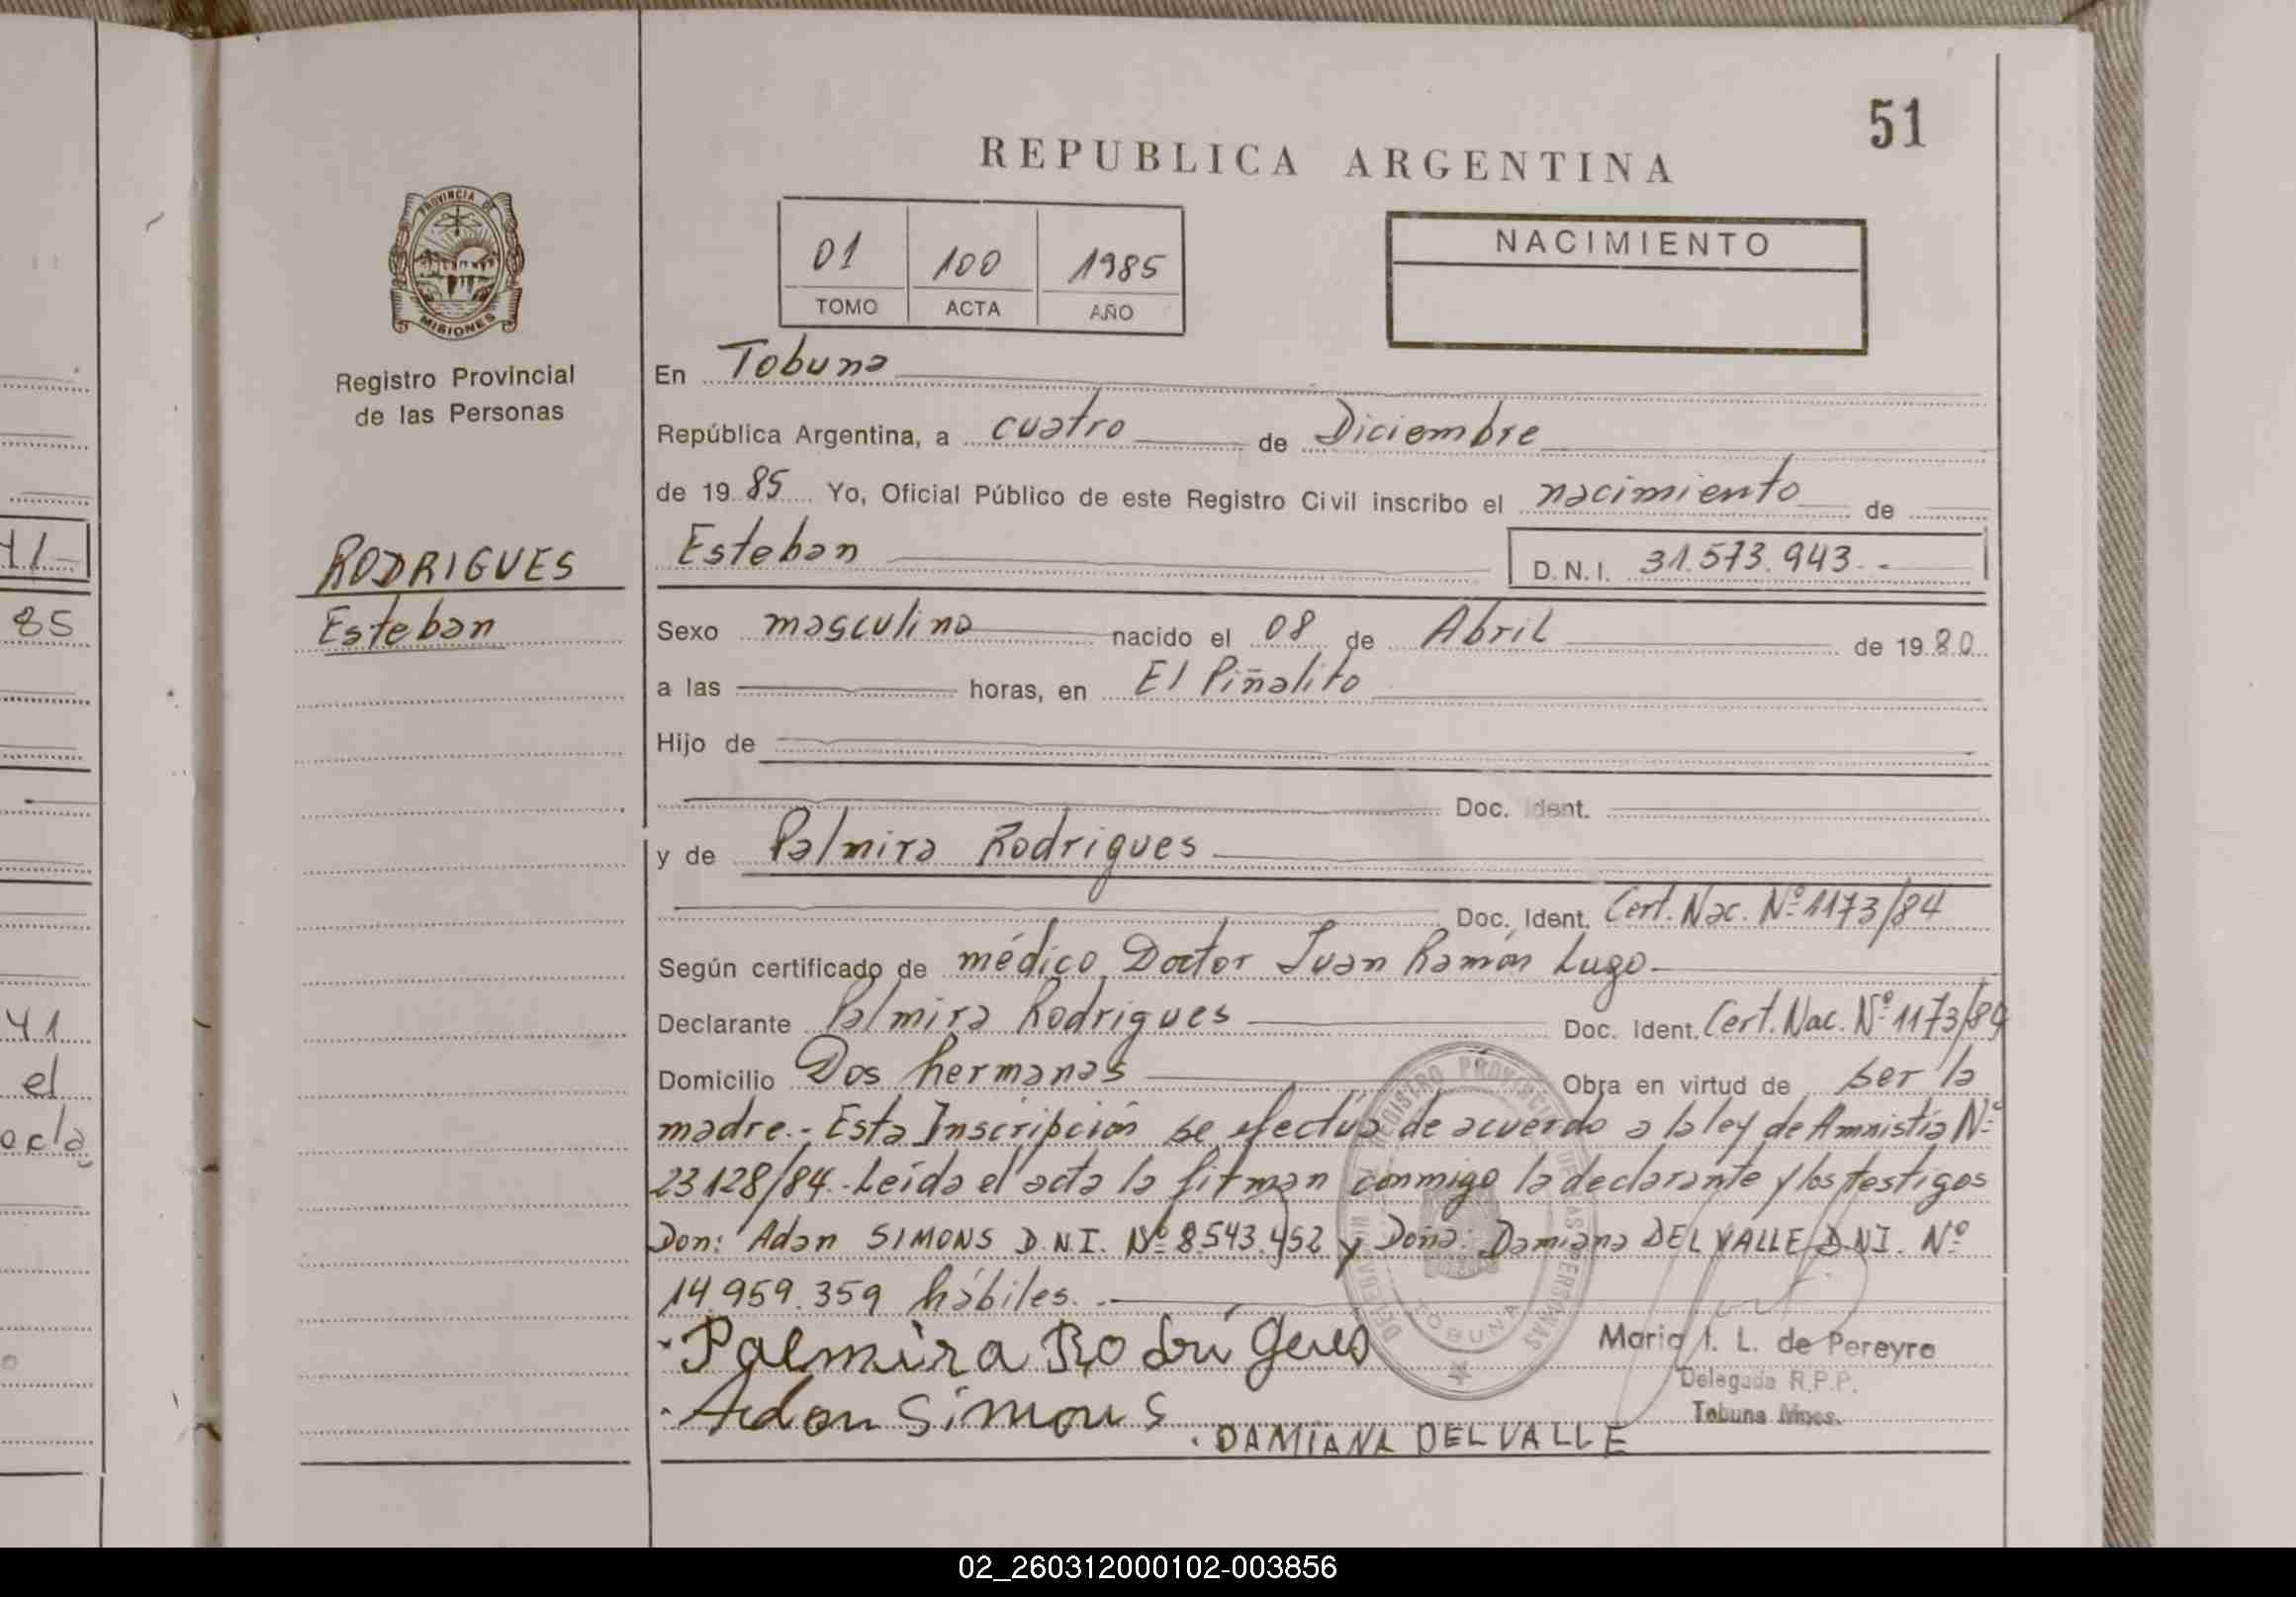 51
REPUBLICA ARGENTINA
PROVINCIA DE
MISIONES
Registro Provincial
de las Personas
01 100 1985
TOMO ACTA AÑO
NACIMIENTO
En Tobuna
República Argentina, a cuatro de Diciembre
de 1985 Yo, Oficial Público de este Registro Civil inscribo el nacimiento de
RODRIGUES
Esteban
Esteban D.N.I. 31.573.943.-
Sexo masculino nacido el 08 de Abril de 1980
a las horas, en El Piñalito
Hijo de
Doc. Ident.
y de Palmira Rodrigues
Doc. Ident. Cert. Nac. Nº 1173/84
Según certificado de médico Doctor Juan Ramón Lugo
Declarante Palmira Rodrigues Doc. Ident. Cert. Nac. Nº 1173/84
Domicilio Dos hermanas Obra en virtud de ser la
madre.- Esta Inscripción se efectúa de acuerdo a la ley de Amnistía Nº
23128/84.- Leída el acta la firman conmigo la declarante y los testigos
Don: Adan SIMONS D.N.I. Nº 8.543.452 y Doña: Damiana DEL VALLE D.NI. Nº
14.959.359 hábiles.-
Palmira Rodrigues
Adan Simons
DAMIANA DEL VALLE
Maria I. L. de Pereyra
Delegada R.P.P.
Tobuna Mnes.
41
85
41
el
02_260312000102-003856